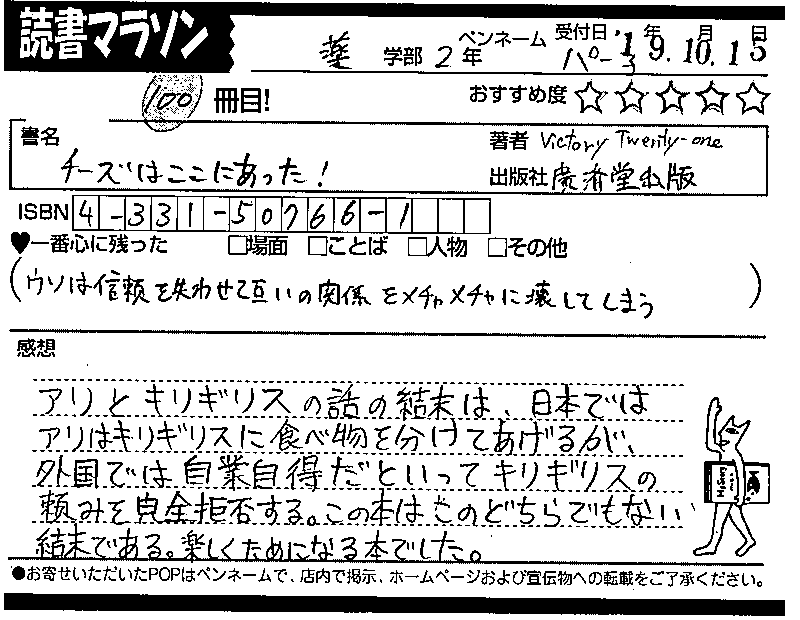 読書マラソン
薬 学部 2 年 ペンネーム パー子 受付日 '19年.10月.15日
100 冊目! おすすめ度 ☆☆☆☆☆
書名 チーズはここにあった!
著者 Victory Twenty-one
出版社 廣済堂出版
ISBN 4-331-50766-1
♥一番心に残った □場面 □ことば □人物 □その他
(ウソは信頼を失わせて互いの関係をメチャメチャに壊してしまう)
感想
アリとキリギリスの話の結末は、日本では
アリはキリギリスに食べ物を分けてあげるが、
外国では自業自得だといってキリギリスの
頼みを完全拒否する。この本はこのどちらでもない
結末である。楽しくためになる本でした。
●お寄せいただいたPOPはペンネームで、店内で掲示、ホームページおよび宣伝物への転載をご了承ください。